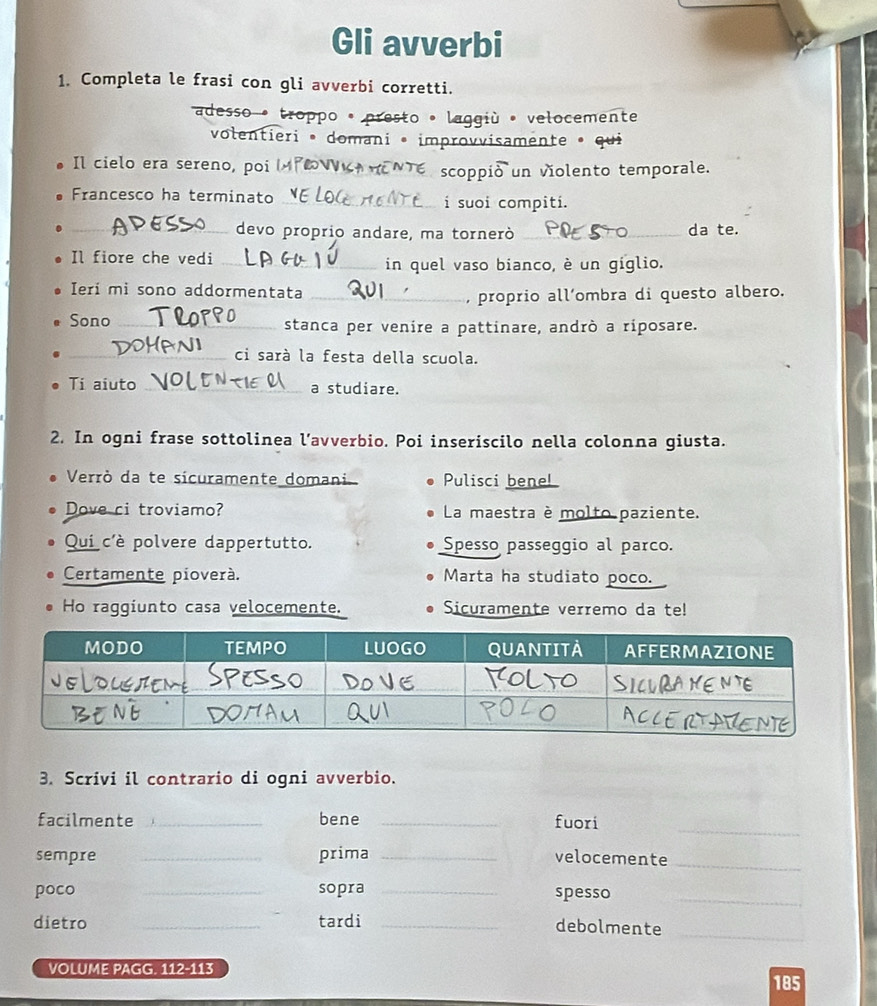 Gli avverbi
1. Completa le frasi con gli avverbi corretti.
adesso • troppo • presto • laggiù • velocemente
volentieri • domani • improvvisamente • qui
• Il cielo era sereno, poi IMPROVVISAMENTE scoppiò un violento temporale.
• Francesco ha terminato VELOCEMENTE i suoi compiti.
• ADESSO devo proprio andare, ma tornerò PRESTO da te.
• Il fiore che vedi LAGGIÚ in quel vaso bianco, è un giglio.
• Ieri mi sono addormentata QUI, proprio all'ombra di questo albero.
• Sono TROPPO stanca per venire a pattinare, andrò a riposare.
• DOMANI ci sarà la festa della scuola.
• Ti aiuto VOLENTIERI a studiare.
2. In ogni frase sottolinea l'avverbio. Poi inseriscilo nella colonna giusta.
• Verrò da te sicuramente domani.
• Dove ci troviamo?
• Qui c'è polvere dappertutto.
• Certamente pioverà.
• Ho raggiunto casa velocemente.
• Pulisci bene!
• La maestra è molto paziente.
• Spesso passeggio al parco.
• Marta ha studiato poco.
• Sicuramente verremo da te!
MODO TEMPO LUOGO QUANTITÀ AFFERMAZIONE
VELOCEMENE SPESSO DOVE MOLTO SICURAMENTE
BENE DOMANI QUI POCO ACCERTAMENTE
3. Scrivi il contrario di ogni avverbio.
facilmente bene fuori
sempre prima velocemente
poco sopra spesso
dietro tardi debolmente
VOLUME PAGG. 112-113
185